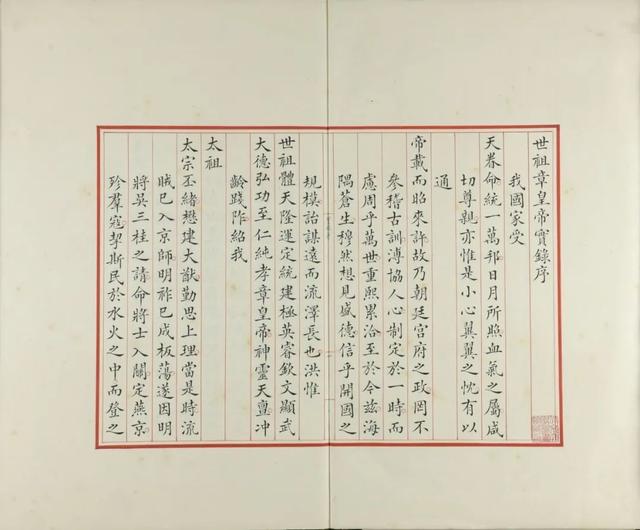 世祖章皇帝實錄序
我國家受
天眷命統一萬邦日月所照血氣之屬咸
切尊親亦惟是小心翼翼之忱有以
通
帝載而昭來許故乃朝廷宮府之政罔不
參稽古訓溥協人心制定於一時而
慮周乎萬世重熙累洽至於今茲海
隅蒼生穆然想見盛德信乎開國之
規模詒謀遠而流澤長也洪惟
世祖體天隆運定統建極英睿欽文顯武
大德弘功至仁純孝章皇帝神靈天亶冲
齡踐阼紹我
太祖
太宗丕緒懋建大猷勤思上理當是時流
賊已入京師明祚已成板蕩遂因明
將吳三桂之請命將士入關定燕京
殄羣寇挈斯民於水火之中而登之